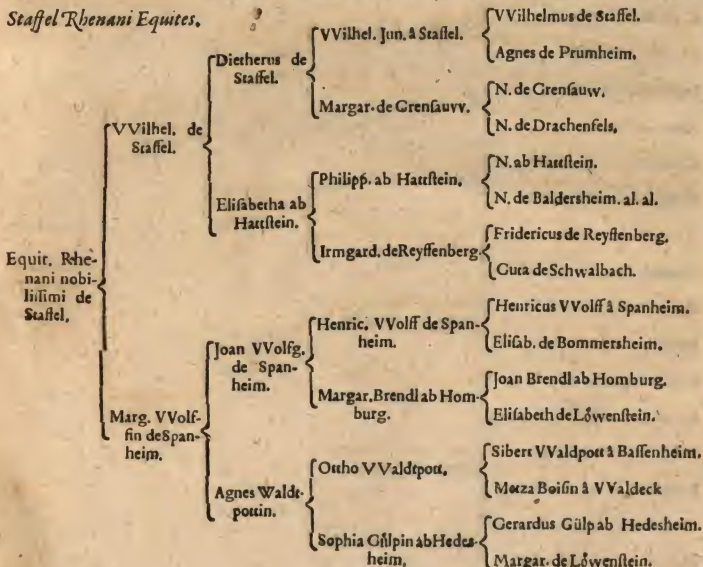 Staffel Rhenani Equites.
Equit. Rhe-
nani nobi-
lissimi de
Staffel,
VVilhel. de
Staffel.
Marg. VVolf-
fin de Span-
heim.
Dietherus de
Staffel.
Elisabetha ab
Hattstein.
Joan VVolfg.
de Span-
heim.
Agnes Waldt-
pottin.
VVilhel. Jun. â Staffel.
Margar. de Grensauvv.
Philipp. ab Hattstein.
Irmgard. de Reyffenberg.
Henric. VVolff de Span-
heim.
Margar. Brendl ab Hom-
burg.
Ottho VValdtpott.
Sophia Gülpin ab Hedes-
heim.
VVilhelmus de Staffel.
Agnes de Prumheim.
N. de Grensauw.
N. de Drachenfels.
N. ab Hattstein.
N. de Baldersheim. al. al.
Fridericus de Reyffenberg.
Guta de Schwalbach.
Henricus VVolff â Spanheim.
Elisab. de Bommersheim.
Joan Brendl ab Homburg.
Elisabeth de Löwenstein.
Sibert VValdpott â Bassenheim.
Metza Boisin â VValdeck
Gerardus Gülp ab Hedesheim.
Margar. de Löwenstein.